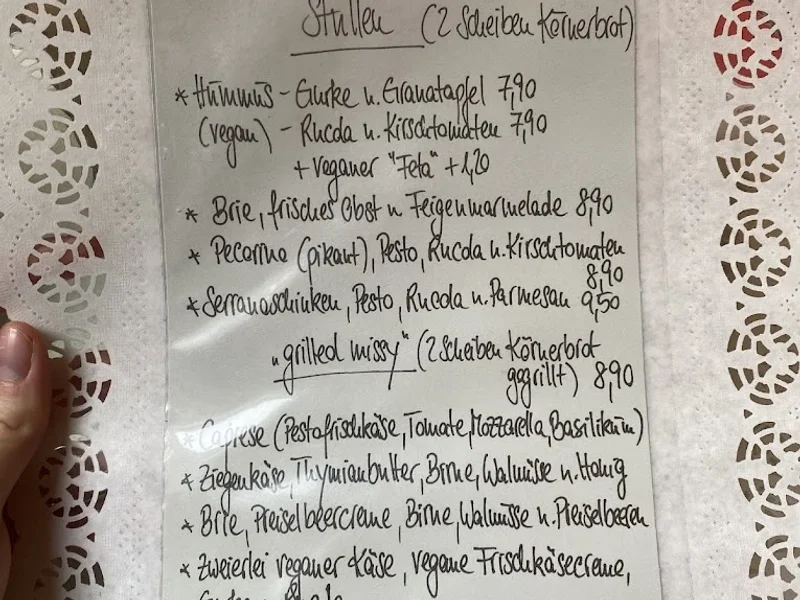 Stullen (2 Scheiben Körnerbrot)
* Hummus - Gurke u. Granatapfel 7,90
(vegan) - Rucola u. Kirschtomaten 7,90
+ veganer "Feta" + 1,20
* Brie, frisches Obst u Feigenmarmelade 8,90
* Pecorino (pikant), Pesto, Rucola u. Kirschtomaten
8,90
* Serranoschinken, Pesto, Rucola u. Parmesan 9,50
"grilled missy" (2 Scheiben Körnerbrot
gegrillt) 8,90
* Caprese (Pestofrischkäse, Tomate, Mozzarella, Basilikum)
* Ziegenkäse, Thymianbutter, Birne, Walnüsse u. Honig
* Brie, Preiselbeercreme, Birne, Walnüsse u. Preiselbeeren
* Zweierlei veganer Käse, vegane Frischkäsecreme,